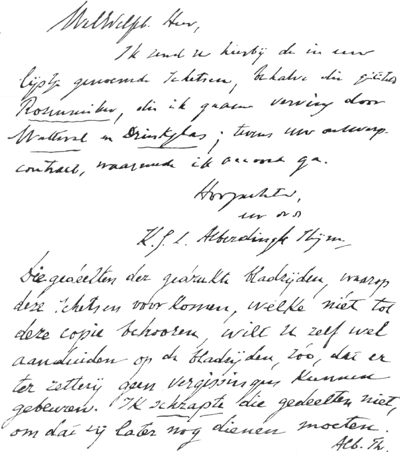 WelEdelgb. Heer,
Ik zend u hierbij de in uw
lijstje genoemde schetsen, behalve die
die ik gaarne vervang door
Waterval en Drinkglas; tevens uw ontwerp-
contract, waarmede ik accoord ga.
Hoogachtend,
uw
K. J. L. Alberdingk Thijm
Die gedeelten der gedrukte bladzijden, waarop
deze schetsen voorkomen, welke niet tot
deze copie behooren, wilt u zelf wel
aanduiden op de bladzijden, zóó, dat er
ter zetterij geen vergissingen kunnen
gebeuren. Ik schrapte die gedeelten niet,
om dat zij later nog dienen moeten.
Alb. Th.